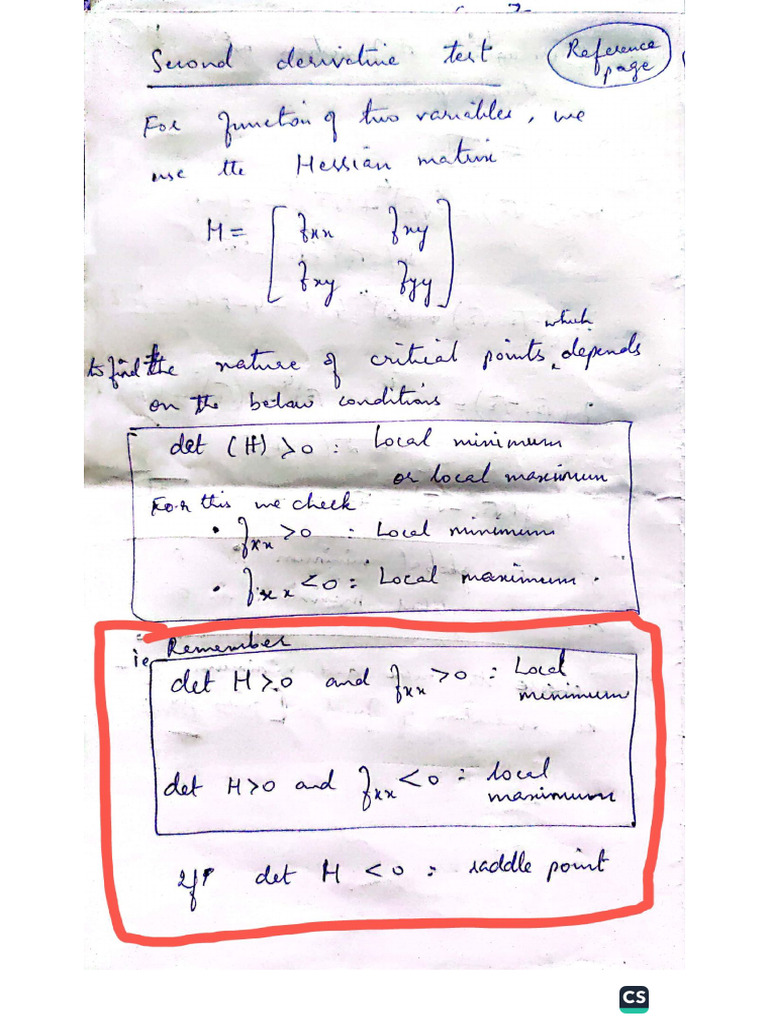 Second derivative test
Reference
page
For function of two variables, we
use the Hessian matrix
H = [ fxx fxy
fxy fyy ]
which
to find the nature of critical points, depends
on the below conditions
det (H) > 0 : Local minimum
or local maximum
For this we check
• fxx > 0 : Local minimum
• fxx < 0 : Local maximum.
ie Remember
det H > 0 and fxx > 0 : Local
minimum
det H > 0 and fxx < 0 : local
maximum
If det H < 0 : saddle point
CS